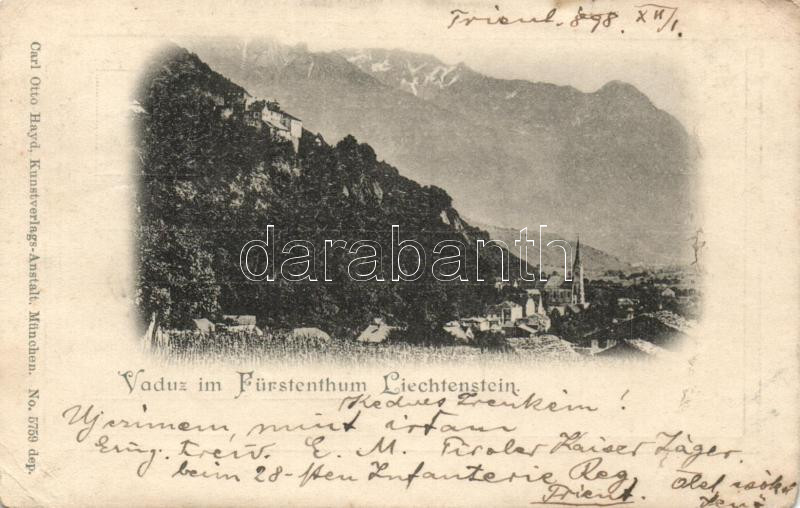 Trient 898. XII/1.
Carl Otto Hayd, Kunstverlags-Anstalt, München. No. 5759 dep.
darabanth
Vaduz im Fürstenthum Liechtenstein.
Kedves !
Uj czimem, mint irtam
E. M. Tiroler Kaiser Jäger.
beim 28-sten Infanterie Reg.
Trient
Jenő